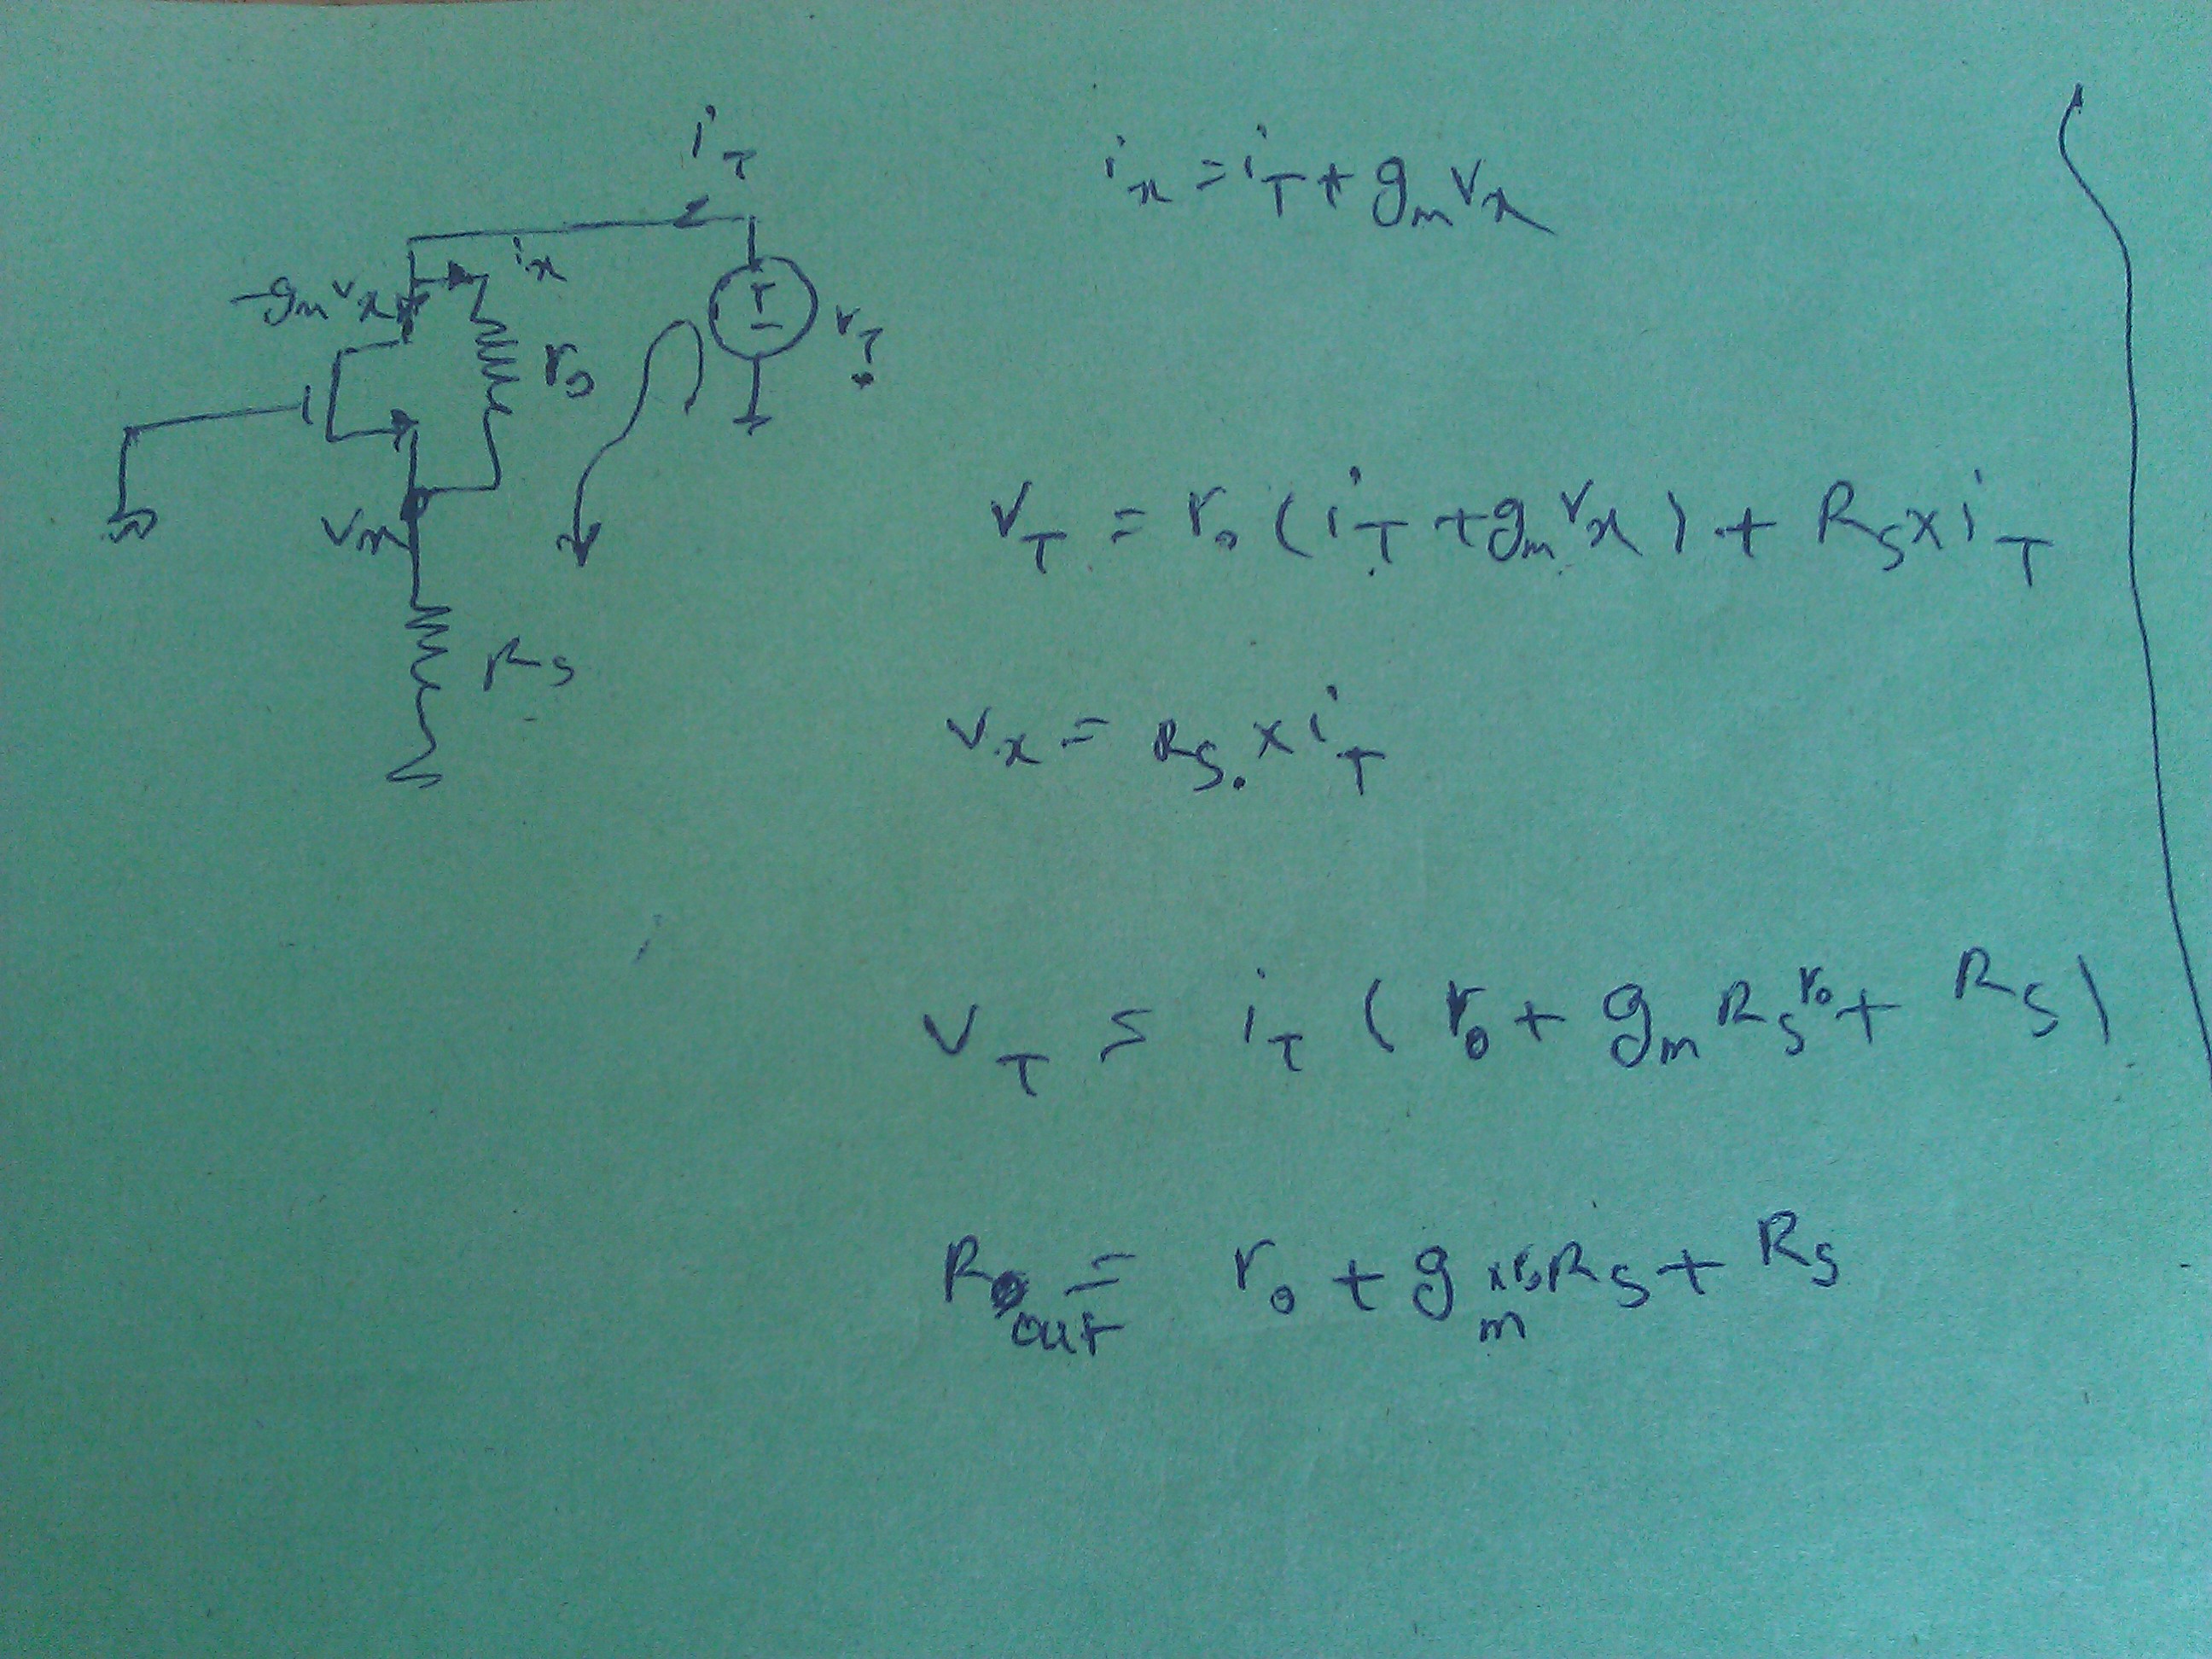 i_T
i_x = i_T + g_m v_x
-g_m v_x
i_x
r_o
v_T
v_T = r_o (i_T + g_m v_x) + R_S × i_T
v_x
R_S
v_x = R_S . × i_T
v_T = i_T ( r_o + g_m R_S r_o + R_S )
R_out = r_o + g_m × r_o R_S + R_S